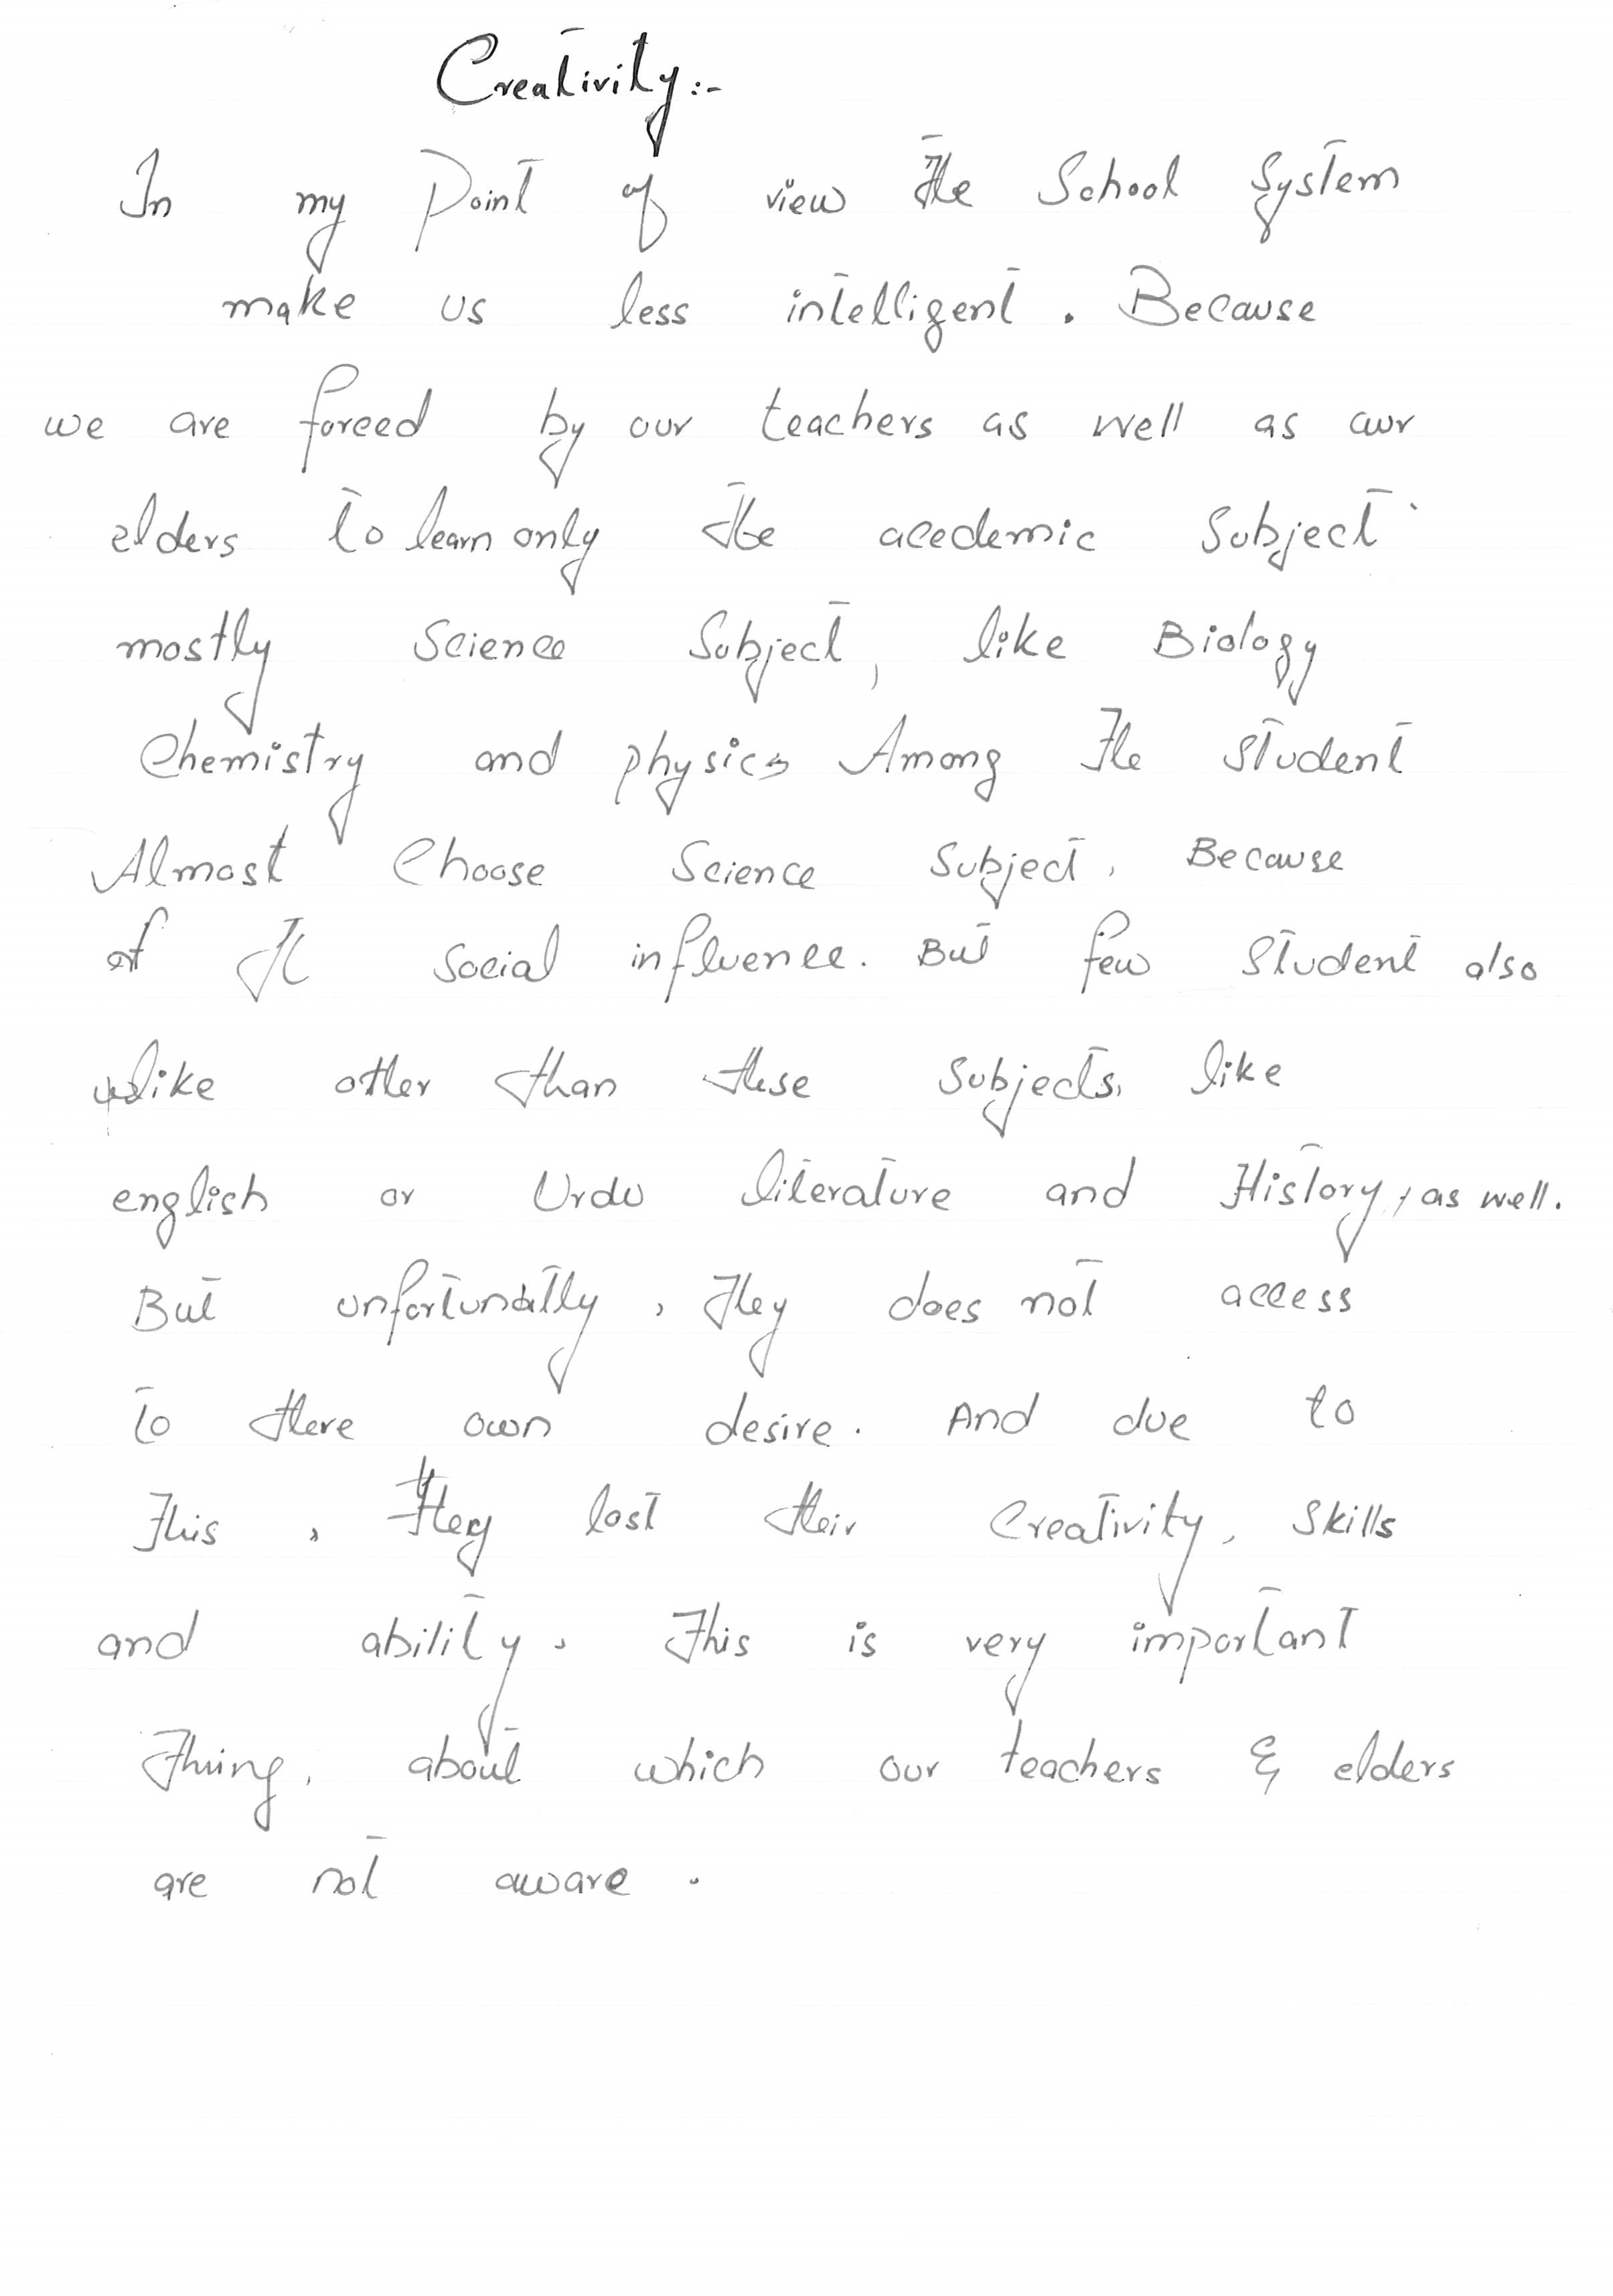 Creativity:-
In my Point of view the School System
make us less intelligent. Because
we are forced by our teachers as well as our
elders to learn only the acedemic Subject
mostly Science Subject, like Biology
Chemistry and physics Among the student
Almost Choose Science Subject, Because
of social influence. But few student also
like other than these subjects, like
english or Urdu literature and History, as well.
But unfortunatlly, they does not access
to there own desire. And due to
This, they lost their Creativity, skills
and ability. This is very important
Thing, about which our teachers & elders
are not aware.